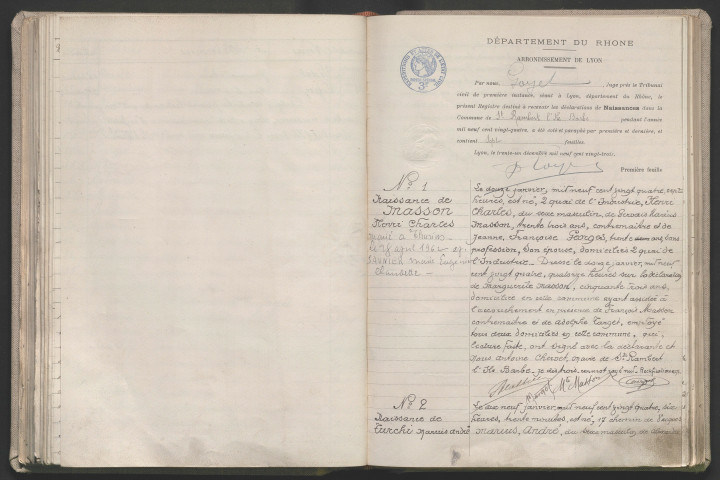 DÉPARTEMENT DU RHONE
ARRONDISSEMENT DE LYON
Par nous, juge près le Tribunal
civil de première instance, séant à Lyon, département du Rhône, le
présent Registre destiné à recevoir les déclarations de Naissances dans la
Commune de St Rambert l'Ile Barbe pendant l'année
mil neuf cent vingt-quatre, a été coté et paraphé par première et dernière, et
contient sept feuillets.
Lyon, le trente-un décembre mil neuf cent vingt-trois.
Première feuille
No 1
Naissance de
MASSON
Henri Charles
marié à
le 28 avril 1962
Marie Eugénie
Le douze janvier, mil neuf cent vingt quatre, sept
heures, est né, 2 quai de l'Industrie, Henri
Charles, du sexe masculin, de Gervais Marius
Masson, trente trois ans, contremaître et de
Jeanne, Françoise Forges, trente ans, sans
profession, son épouse, domiciliés 2 quai de
l'Industrie. Dressé le douze janvier, mil neuf
cent vingt quatre, quatorze heures sur la déclaration
de Marguerite Masson, cinquante trois ans,
domiciliée en cette commune ayant assisté à
l'accouchement en présence de François Masson
contremaître et de Adolphe Tanget, employé
tous deux domiciliés en cette commune, qui,
lecture faite, ont signé avec la déclarante et
Nous Antoine Chevret, maire de St Rambert
l'Ile Barbe.
Masson
Me Masson
No 2
Naissance de
Turchi Marius André
Le dix neuf janvier, mil neuf cent vingt quatre, dix
heures, trente minutes, est né, 17 chemin de
Marius, André, du sexe masculin, de